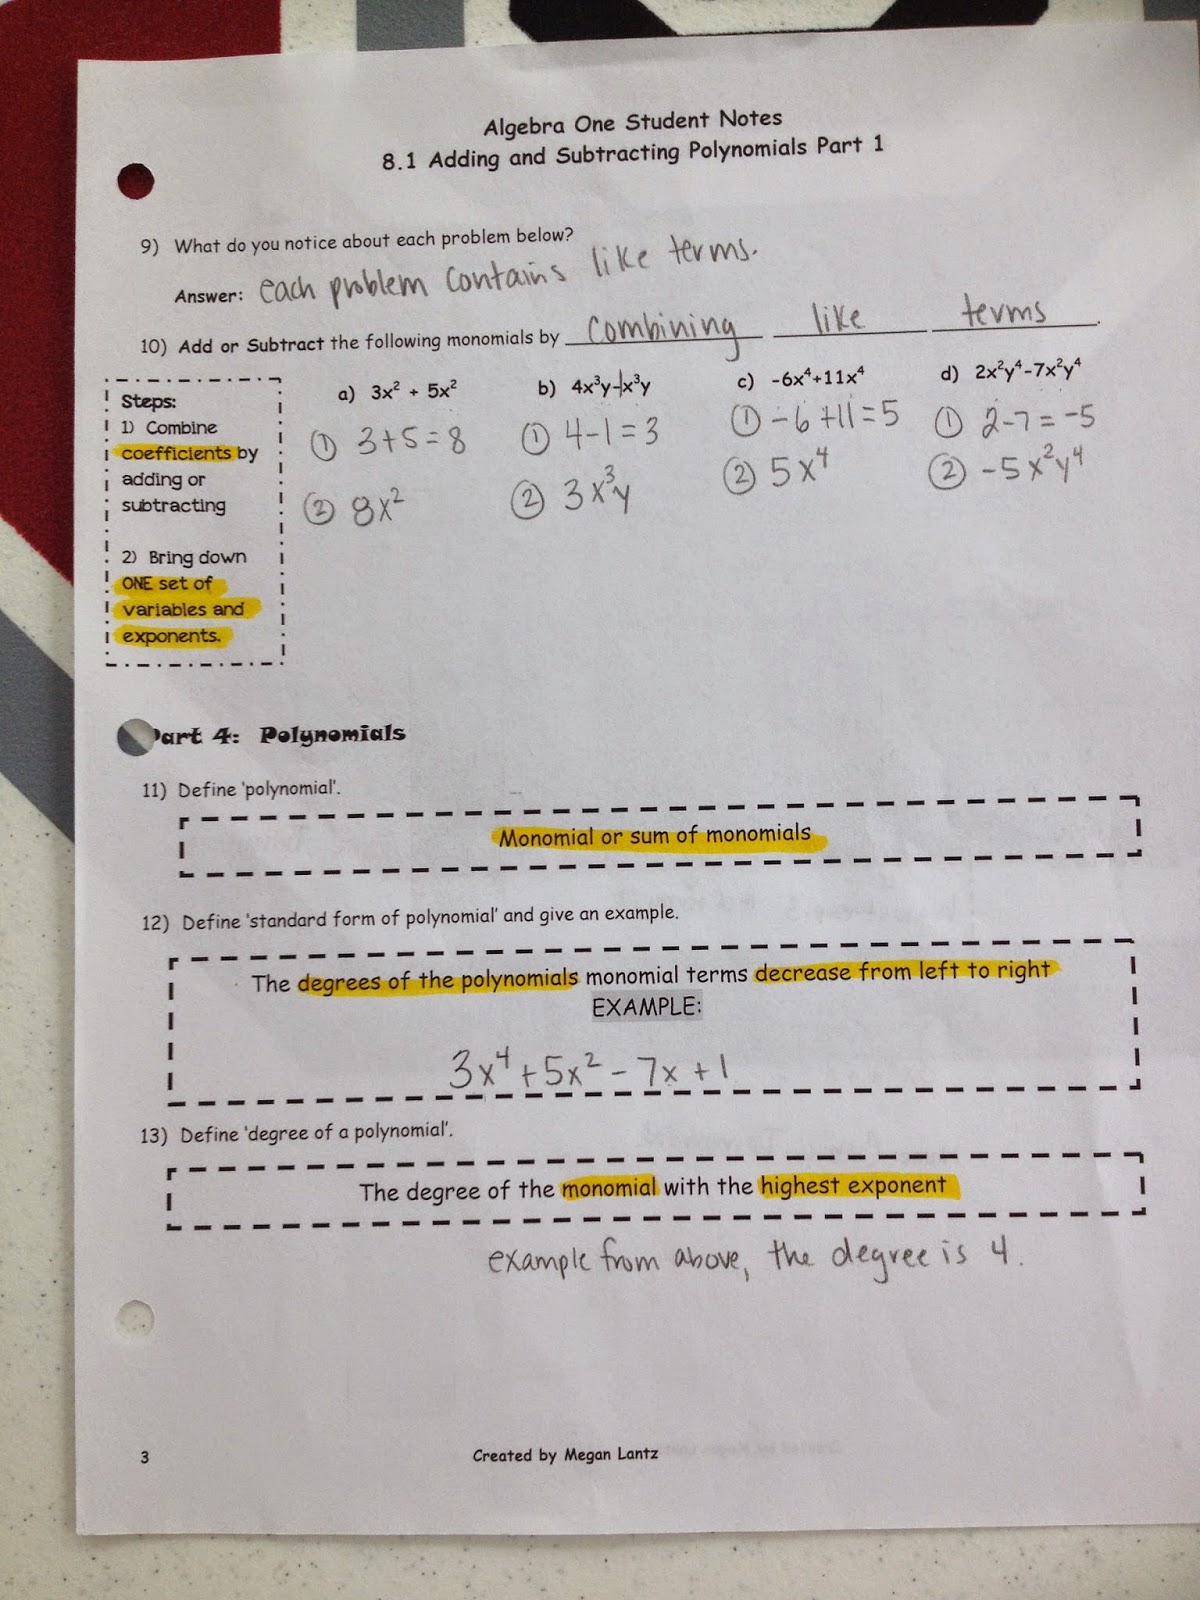 Algebra One Student Notes
8.1 Adding and Subtracting Polynomials Part 1
9) What do you notice about each problem below?
Answer: each problem contains like terms.
10) Add or Subtract the following monomials by combining like terms.
Steps:
1) Combine
coefficients by
adding or
subtracting
2) Bring down
ONE set of
variables and
exponents.
a) 3x² + 5x²
① 3+5=8
② 8x²
b) 4x³y-1x³y
① 4-1=3
② 3x³y
c) -6x⁴+11x⁴
① -6+11=5
② 5x⁴
d) 2x²y⁴-7x²y⁴
① 2-7=-5
② -5x²y⁴
Part 4: Polynomials
11) Define 'polynomial'.
Monomial or sum of monomials
12) Define 'standard form of polynomial' and give an example.
The degrees of the polynomials monomial terms decrease from left to right
EXAMPLE:
3x⁴+5x²-7x+1
13) Define 'degree of a polynomial'.
The degree of the monomial with the highest exponent
example from above, the degree is 4.
3
Created by Megan Lantz